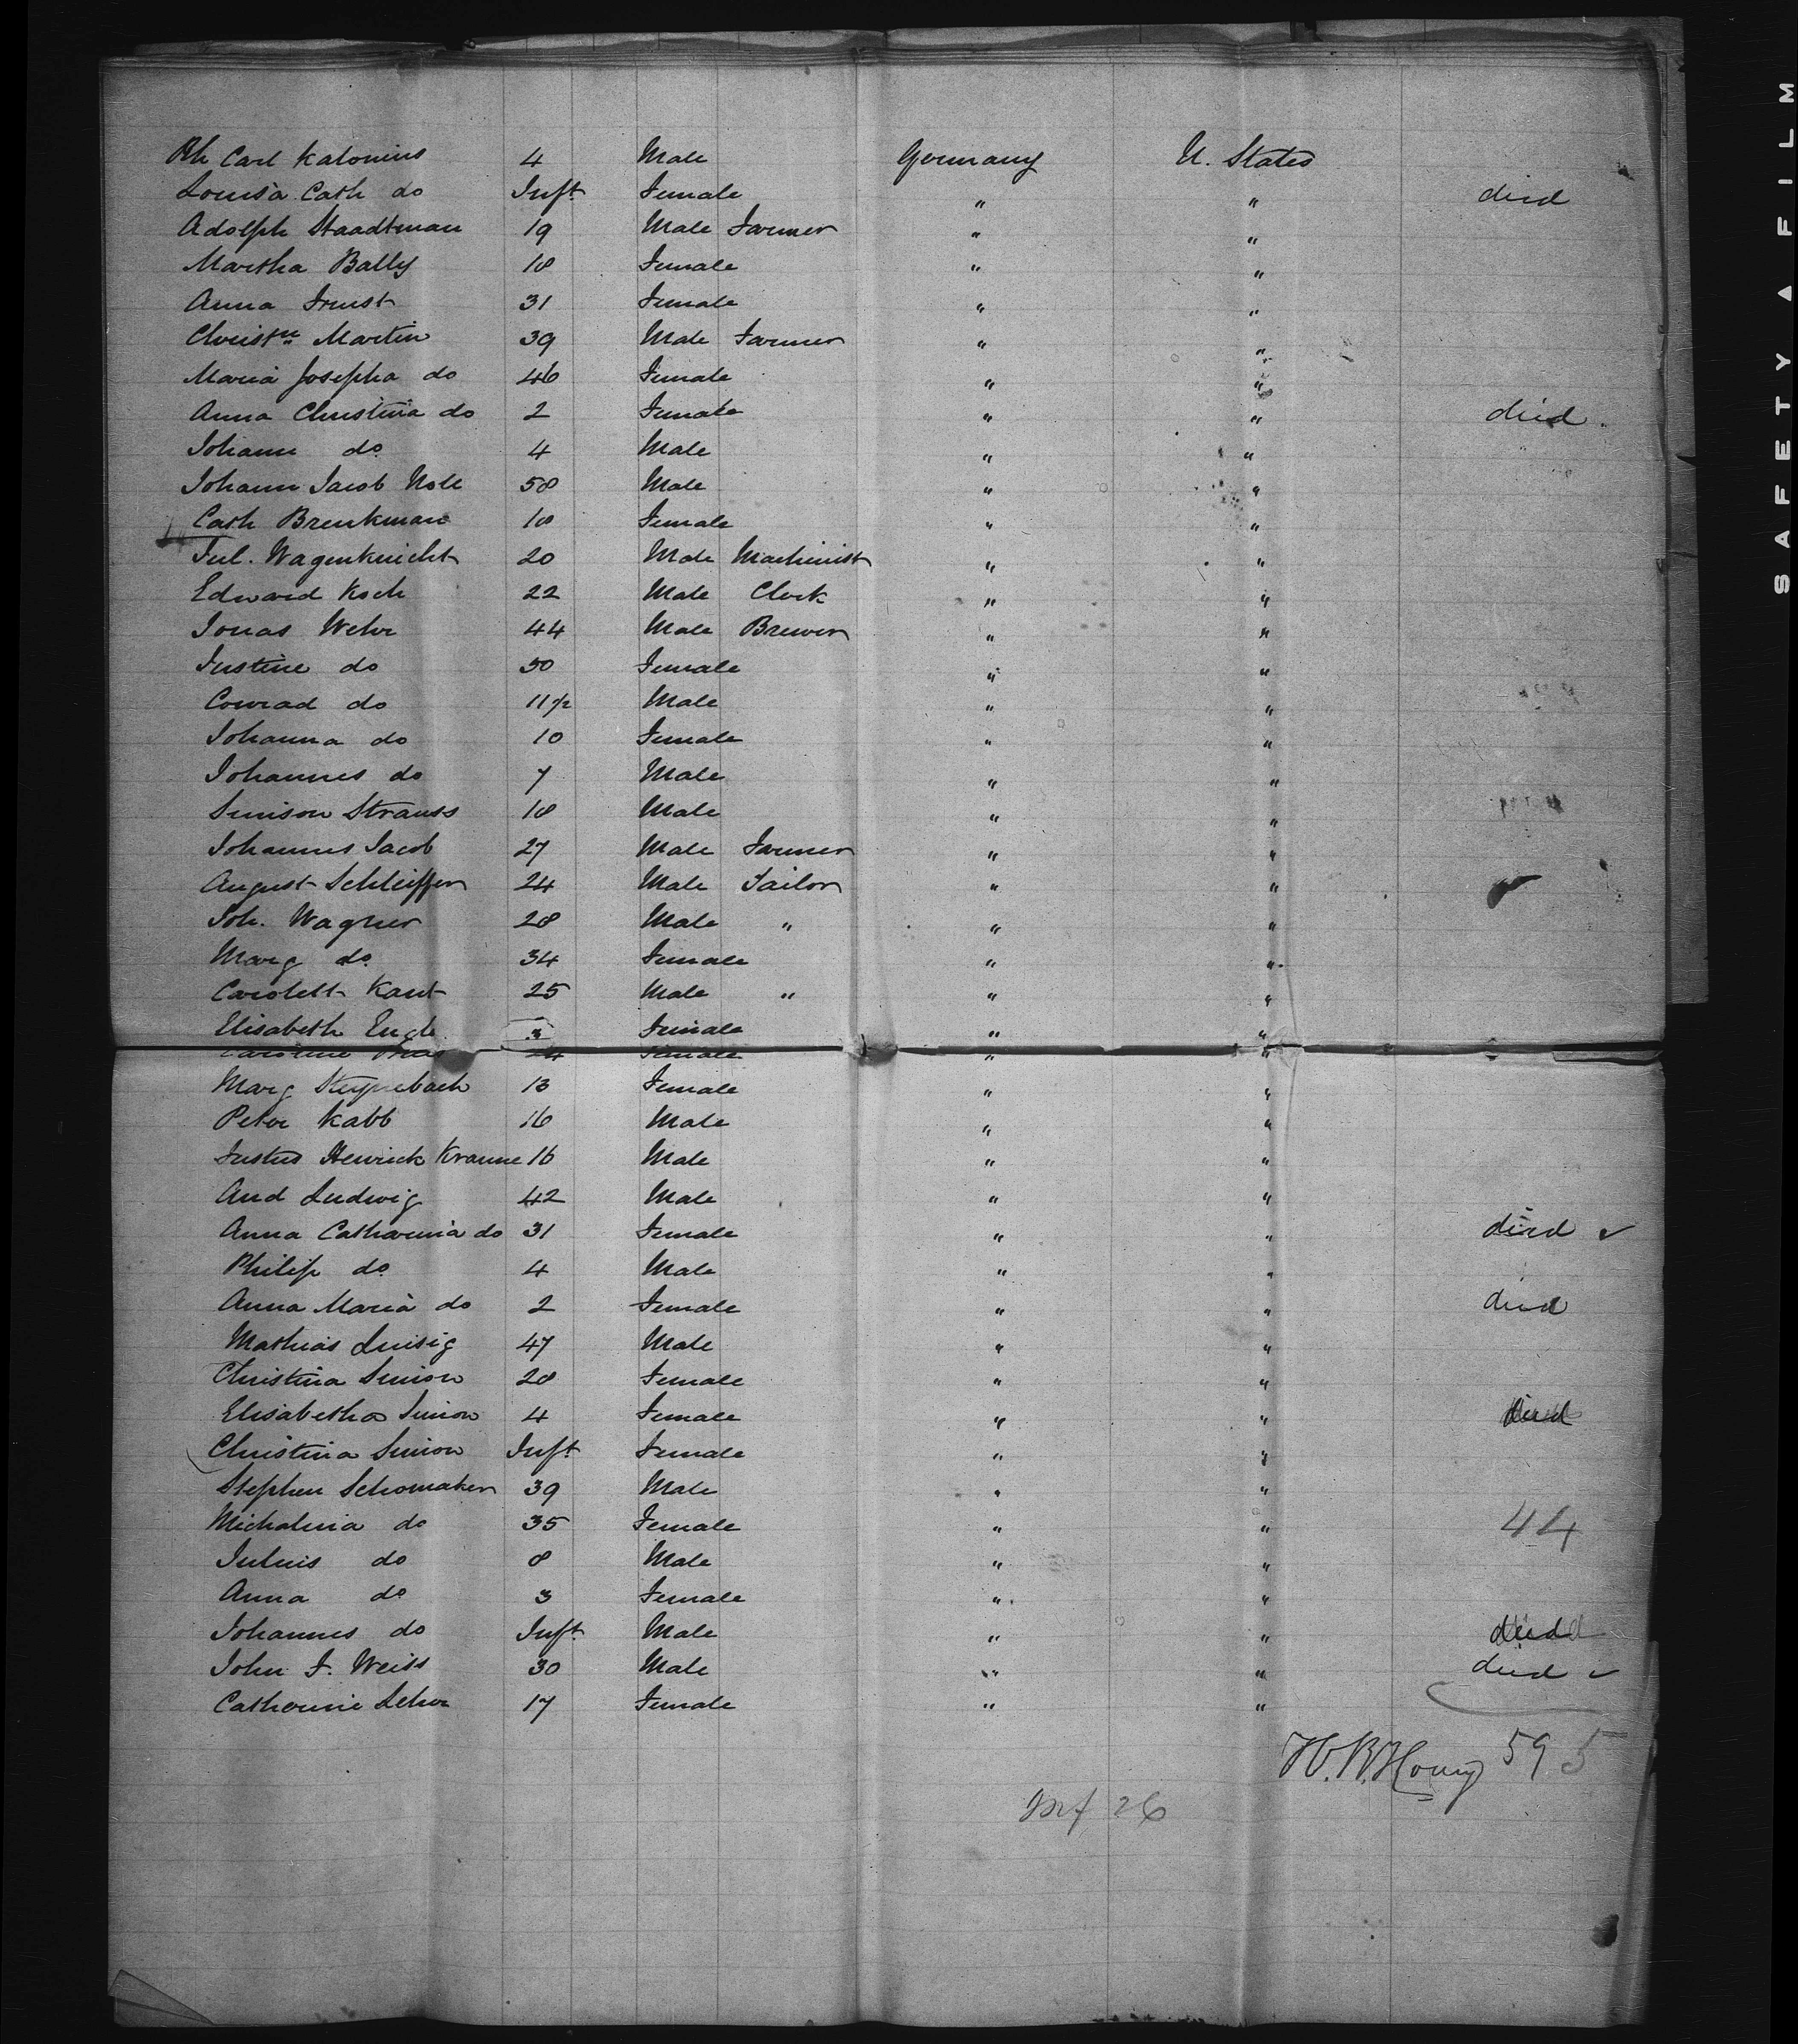 Ph Carl Kalonius 4 Male Germany U. States
Louisa Cath do Inft. Female " " died
Adolph Staadtman 19 Male Farmer " "
Martha Bally 18 Female " "
Anna Ernst 31 Female " "
Christn Martin 39 Male Farmer " "
Maria Josepha do 46 Female " "
Anna Christina do 2 Female " " died.
Johann do 4 Male " "
Johann Jacob Nole 58 Male " "
Cath Brenkman 18 Female " "
Jul. Wagenknicht 20 Male Machinist " "
Edward Koch 22 Male Clerk " "
Jonas Wehr 44 Male Brewer " "
Justine do 50 Female " "
Conrad do 11 1/2 Male " "
Johanna do 10 Female " "
Johannes do 7 Male " "
Simison Strauss 18 Male " "
Johannes Jacob 27 Male Farmer " "
August Schleiffer 24 Male Tailor " "
Joh. Wagner 28 Male " " "
Marg do. 34 Female " "
Kant 25 Male " " "
Elisabeth Engle 3 Female " "
Caroline 24 Female " "
Marg 13 Female " "
Peter Kabb 16 Male " "
Justus Henrick Kranne 16 Male " "
And Ludwig 42 Male " "
Anna Catharina do 31 Female " " died ✓
Philip do 4 Male " "
Anna Maria do 2 Female " " died
Mathias Luisig 47 Male " "
Christina Simon 28 Female " "
Elisabetha Simon 4 Female " " died
Christina Simon Inft. Female " "
Stephen Schomaker 39 Male " "
Michalina do 35 Female " " 44
Julius do 8 Male " "
Anna do 3 Female " "
Johannes do Inft. Male " " died
John F. Weiss 30 Male " " died ✓
Catharine Lehr 17 Female " "
595
Inf 26
SAFETY ▲ FILM